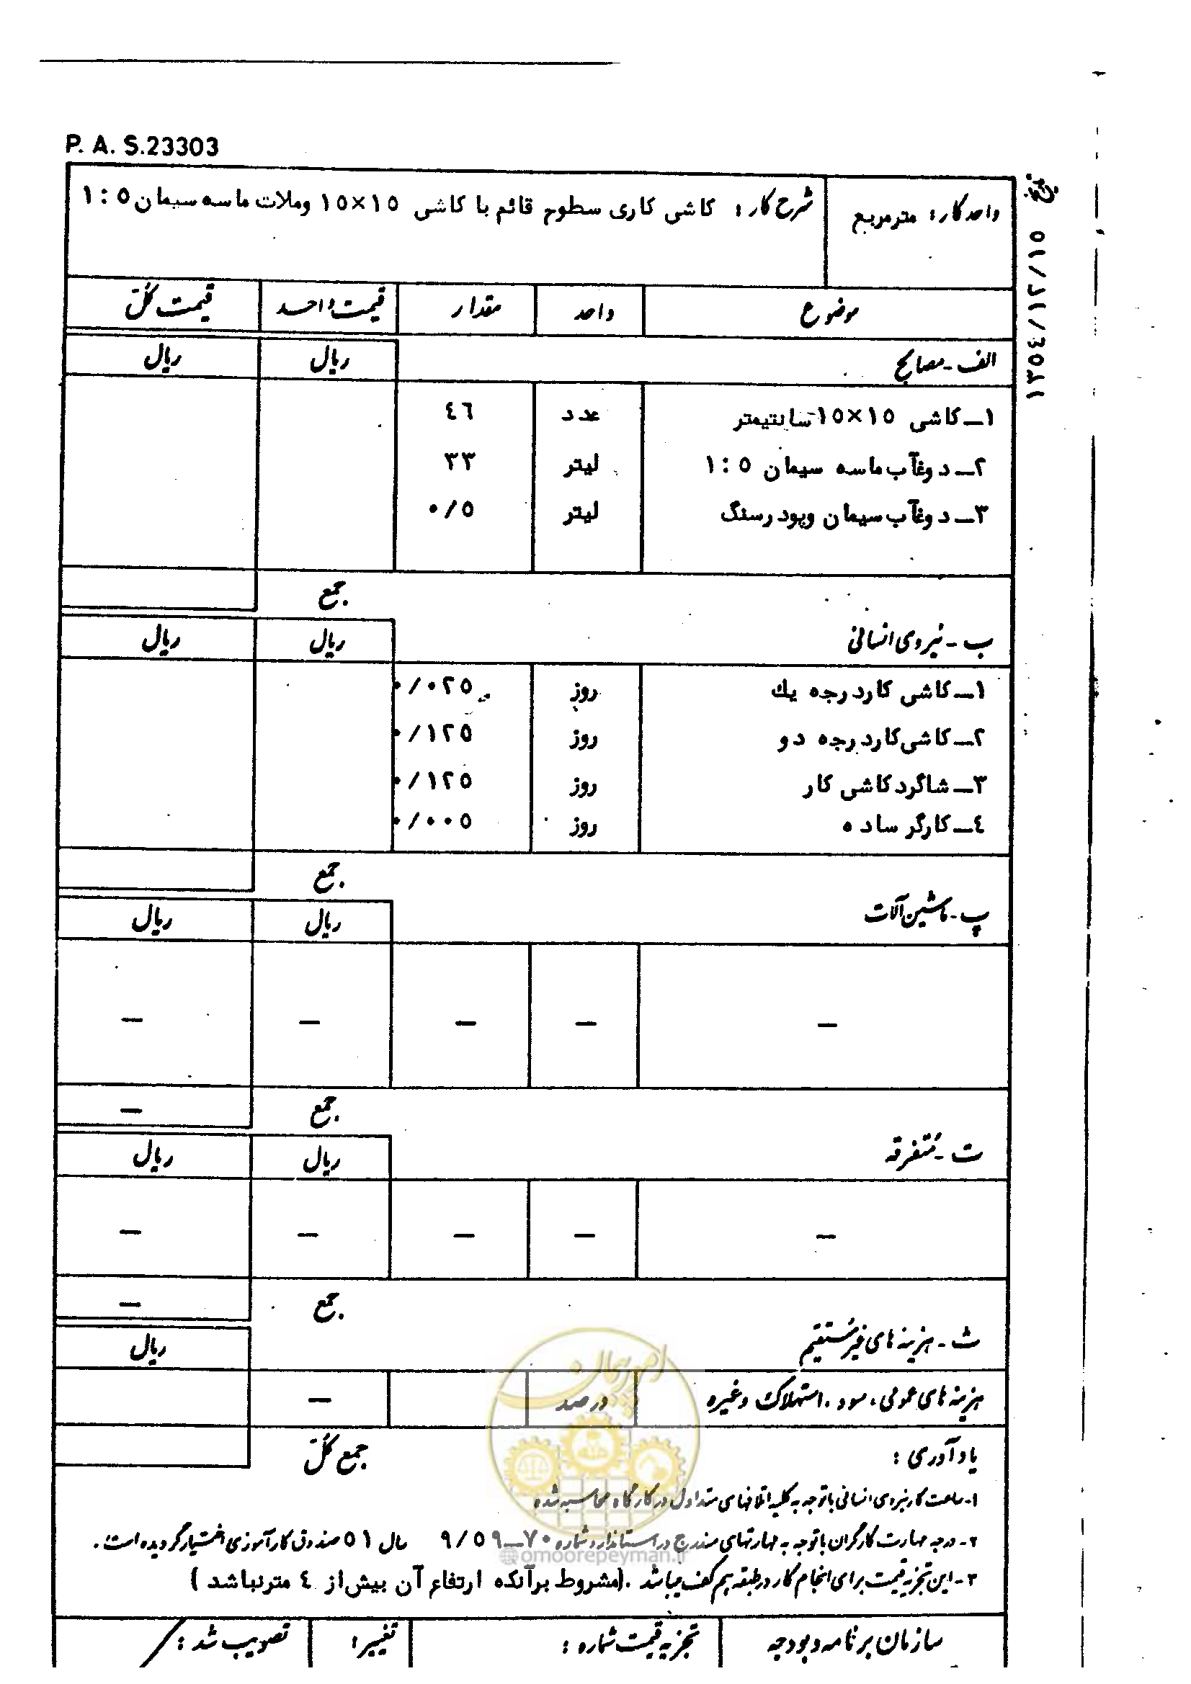 P. A. S.23303
واحد کار: مترمربع
شرح کار: کاشی کاری سطوح قائم با کاشی ۱۵×۱۵ وملات ماسه سیمان ۱:۵
موضوع واحد مقدار قیمت واحد قیمت کل
الف - مصالح ریال ریال
۱ــ کاشی ۱۵×۱۵ سانتیمتر عدد ٤٦
۲ــ دوغآب ماسه سیمان ۱:۵ لیتر ۳۳
۳ــ دوغآب سیمان وپودرسنگ لیتر ۰/۵
جمع
ب - نیروی انسانی ریال ریال
۱ــ کاشی کاردرجه یك روز ۰/۰۲۵
۲ــ کاشی کاردرجه دو روز ۰/۱۲۵
۳ــ شاگردکاشی کار روز ۰/۱۲۵
٤ــ کارگر ساده روز ۰/۰۰۵
جمع
پ - ماشین آلات ریال ریال
— — — — —
جمع —
ت - متفرقه ریال ریال
— — — — —
جمع —
ث - هزینه های غیرمستقیم ریال
هزینه های عمومی، سود، استهلاک وغیره درصد —
یادآوری: جمع کل
۱- ساعت کار نیروی انسانی باتوجه به کلیه اتلافهای متداول درکارگاه محاسبه شده
۲- درجه مهارت کارگران باتوجه به مهارتهای مندرج در استاندارد شماره ۷۰ــ۹/۵۹ سال ۵۱ صندوق کارآموزی اختیار گردیده است.
۳- این تجزیه قیمت برای انجام کار در طبقه هم کف میباشد. (مشروط برآنکه ارتفاع آن بیش از ٤ مترنباشد)
سازمان برنامه وبودجه تجزیه قیمت شماره: تغییر: تصویب شد:
امور پیمان
@omoorepeyman.ir